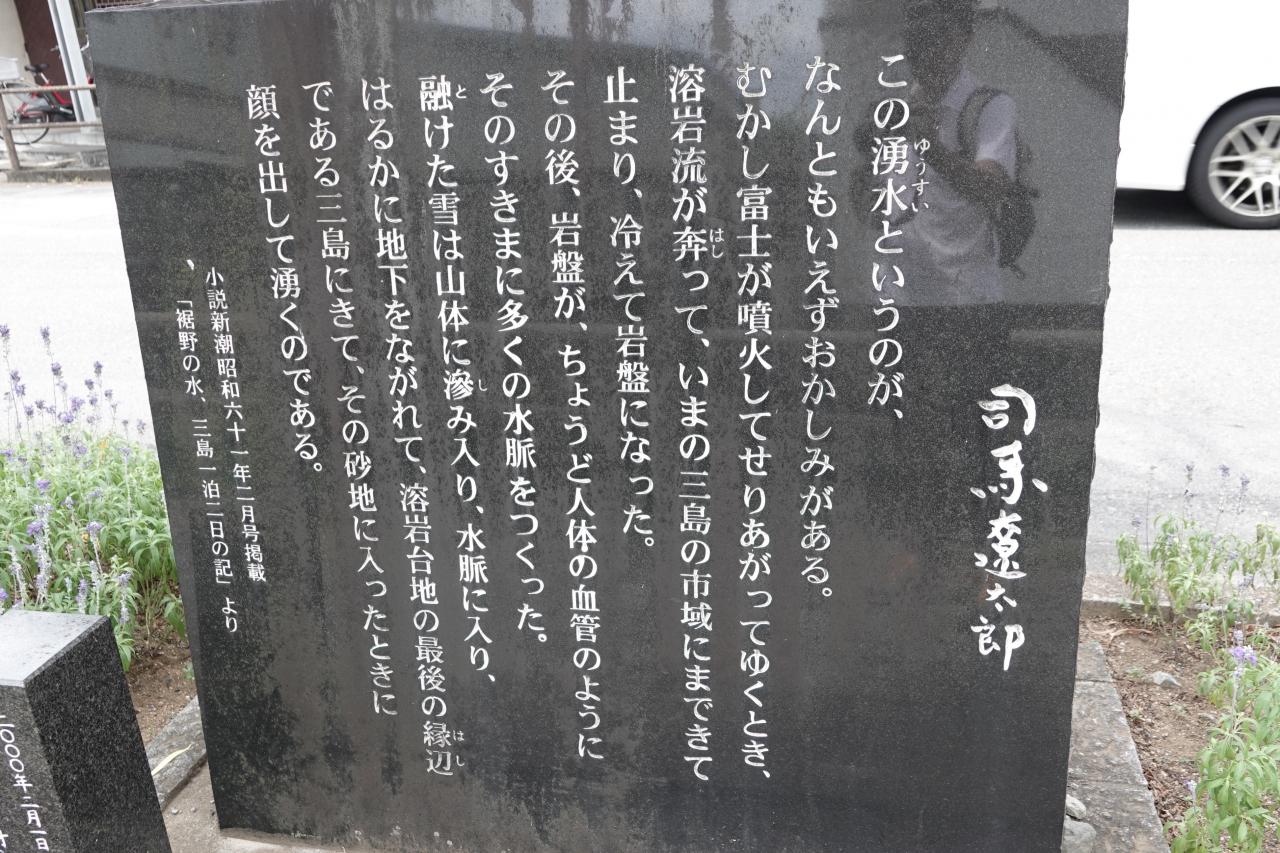 司馬遼太郎
この湧水というのが、
ゆうすい
なんともいえずおかしみがある。
むかし富士が噴火してせりあがってゆくとき、
溶岩流が奔って、いまの三島の市域にまできて
はし
止まり、冷えて岩盤になった。
その後、岩盤が、ちょうど人体の血管のように
そのすきまに多くの水脈をつくった。
融けた雪は山体に滲み入り、水脈に入り、
と
し
はるかに地下をながれて、溶岩台地の最後の縁辺
はし
である三島にきて、その砂地に入ったときに
顔を出して湧くのである。
小説新潮昭和六十一年二月号掲載
「裾野の水、三島一泊二日の記」より
二〇〇〇年二月一日